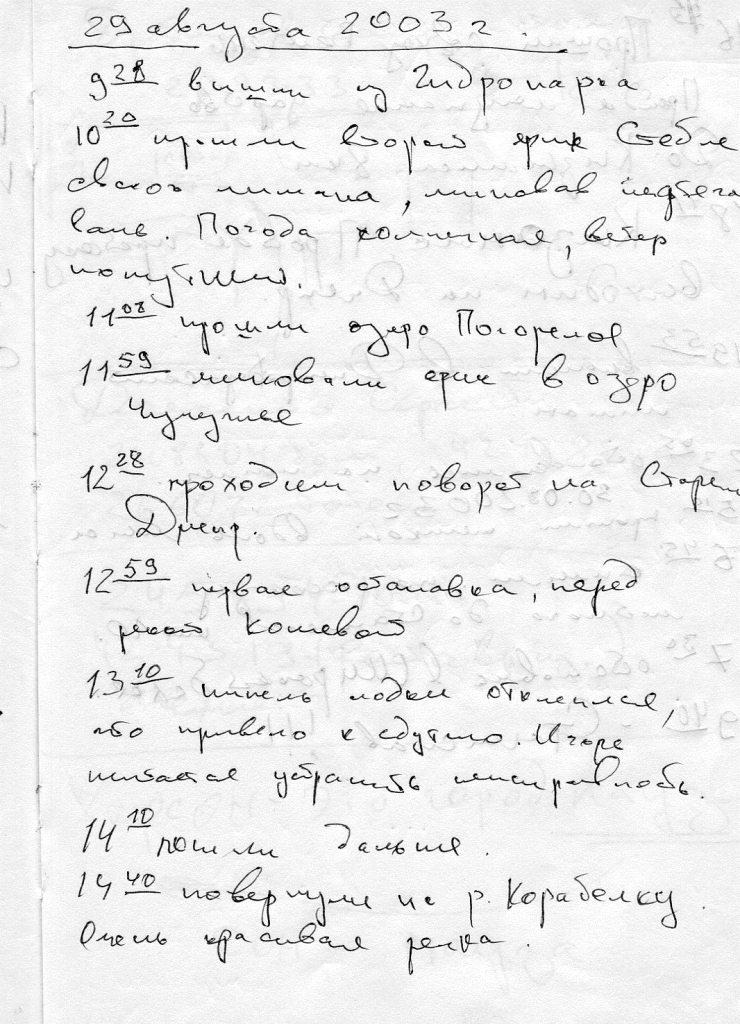 29 августа 2003 г.
9 28 вышли из Гидропарка
10 20 прошли второй ерик Стебле
евского лимана, миновав
Погода солнечная, ветер
попутный.
11 08 прошли озеро Погорелое
11 59 миновали ерик в озеро
12 28 проходим поворот на Старый
Днепр.
12 59 первая остановка, перед
рекой Кошевой
13 10 ниппель лодки отклеился,
что привело к сдутию. Игорь
пытается устранить неисправность.
14 10 пошли дальше.
14 40 повернули на р. Корабелку.
Очень красивая речка.